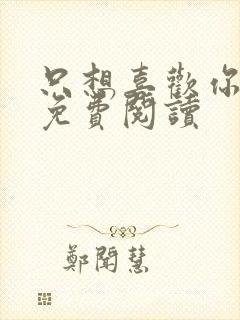 只想喜歡你
免費閱讀
鄭聞慧